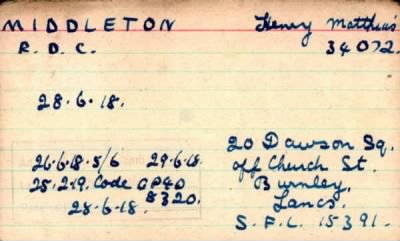 MIDDLETON Henry Matthew
R. D. C. 34072.
28.6.18.
20 Dawson Sq.
off Church St.
Burnley,
Lancs.
S. F. C. 15391.
26.6.18. 5/6 29.6.18.
25.2.19. Code
28.6.18. 8320.